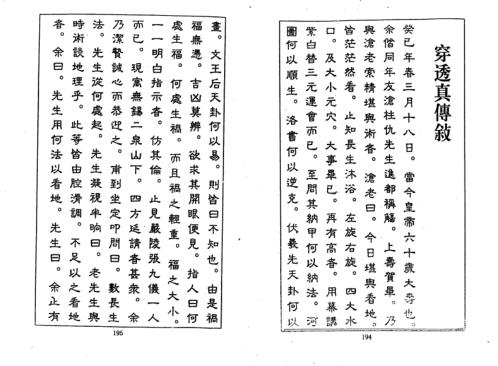 穿透真傳敍
癸巳年春三月十八日。當今皇帝六十歲大壽也。
余偕同年友滄柱仇先生進都稱觴。上壽賀畢。乃
與滄老索精堪輿術者。滄老曰。今日堪輿看地。
皆茫茫然看。止知長生沐浴。左旋右旋。四大水
口。及大小元穴。大事畢已。再有高者。用幕講
紫白替三元運會而已。至問其納甲何以納法。河
圖何以順生。洛書何以逆克。伏羲先天卦何以
194
畫。文王后天卦何以易。則皆曰不知也。由是禍
福無憑。吉凶莫辨。欲求其開眼便見。指人曰何
處生福。何處生禍。而且禍之輕重。福之大小。
一一明白指示者。仿其倫。止見嚴陵張九儀一人
而已。現寓無錫二泉山下。四方延請者甚衆。余
乃潔贄誠心而恭迎之。甫到坐定叩問曰。數長生
法。先生從何處起。先生凝視半晌曰。老先生與
時術談地理乎。此等皆由腔濟調。不足以之看地
者。余曰。先生用何法以看地。先生曰。余止有
195